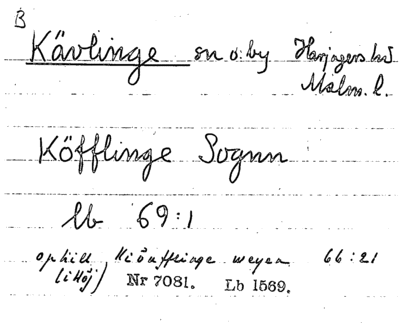 B
Kävlinge sn o. by Harjagers hd
Malm. l.
Köfflinge Sognn
lb 69:1
ophill Kiöufflinge weyen 66:21
(i Höj) Nr 7081. Lb 1569.